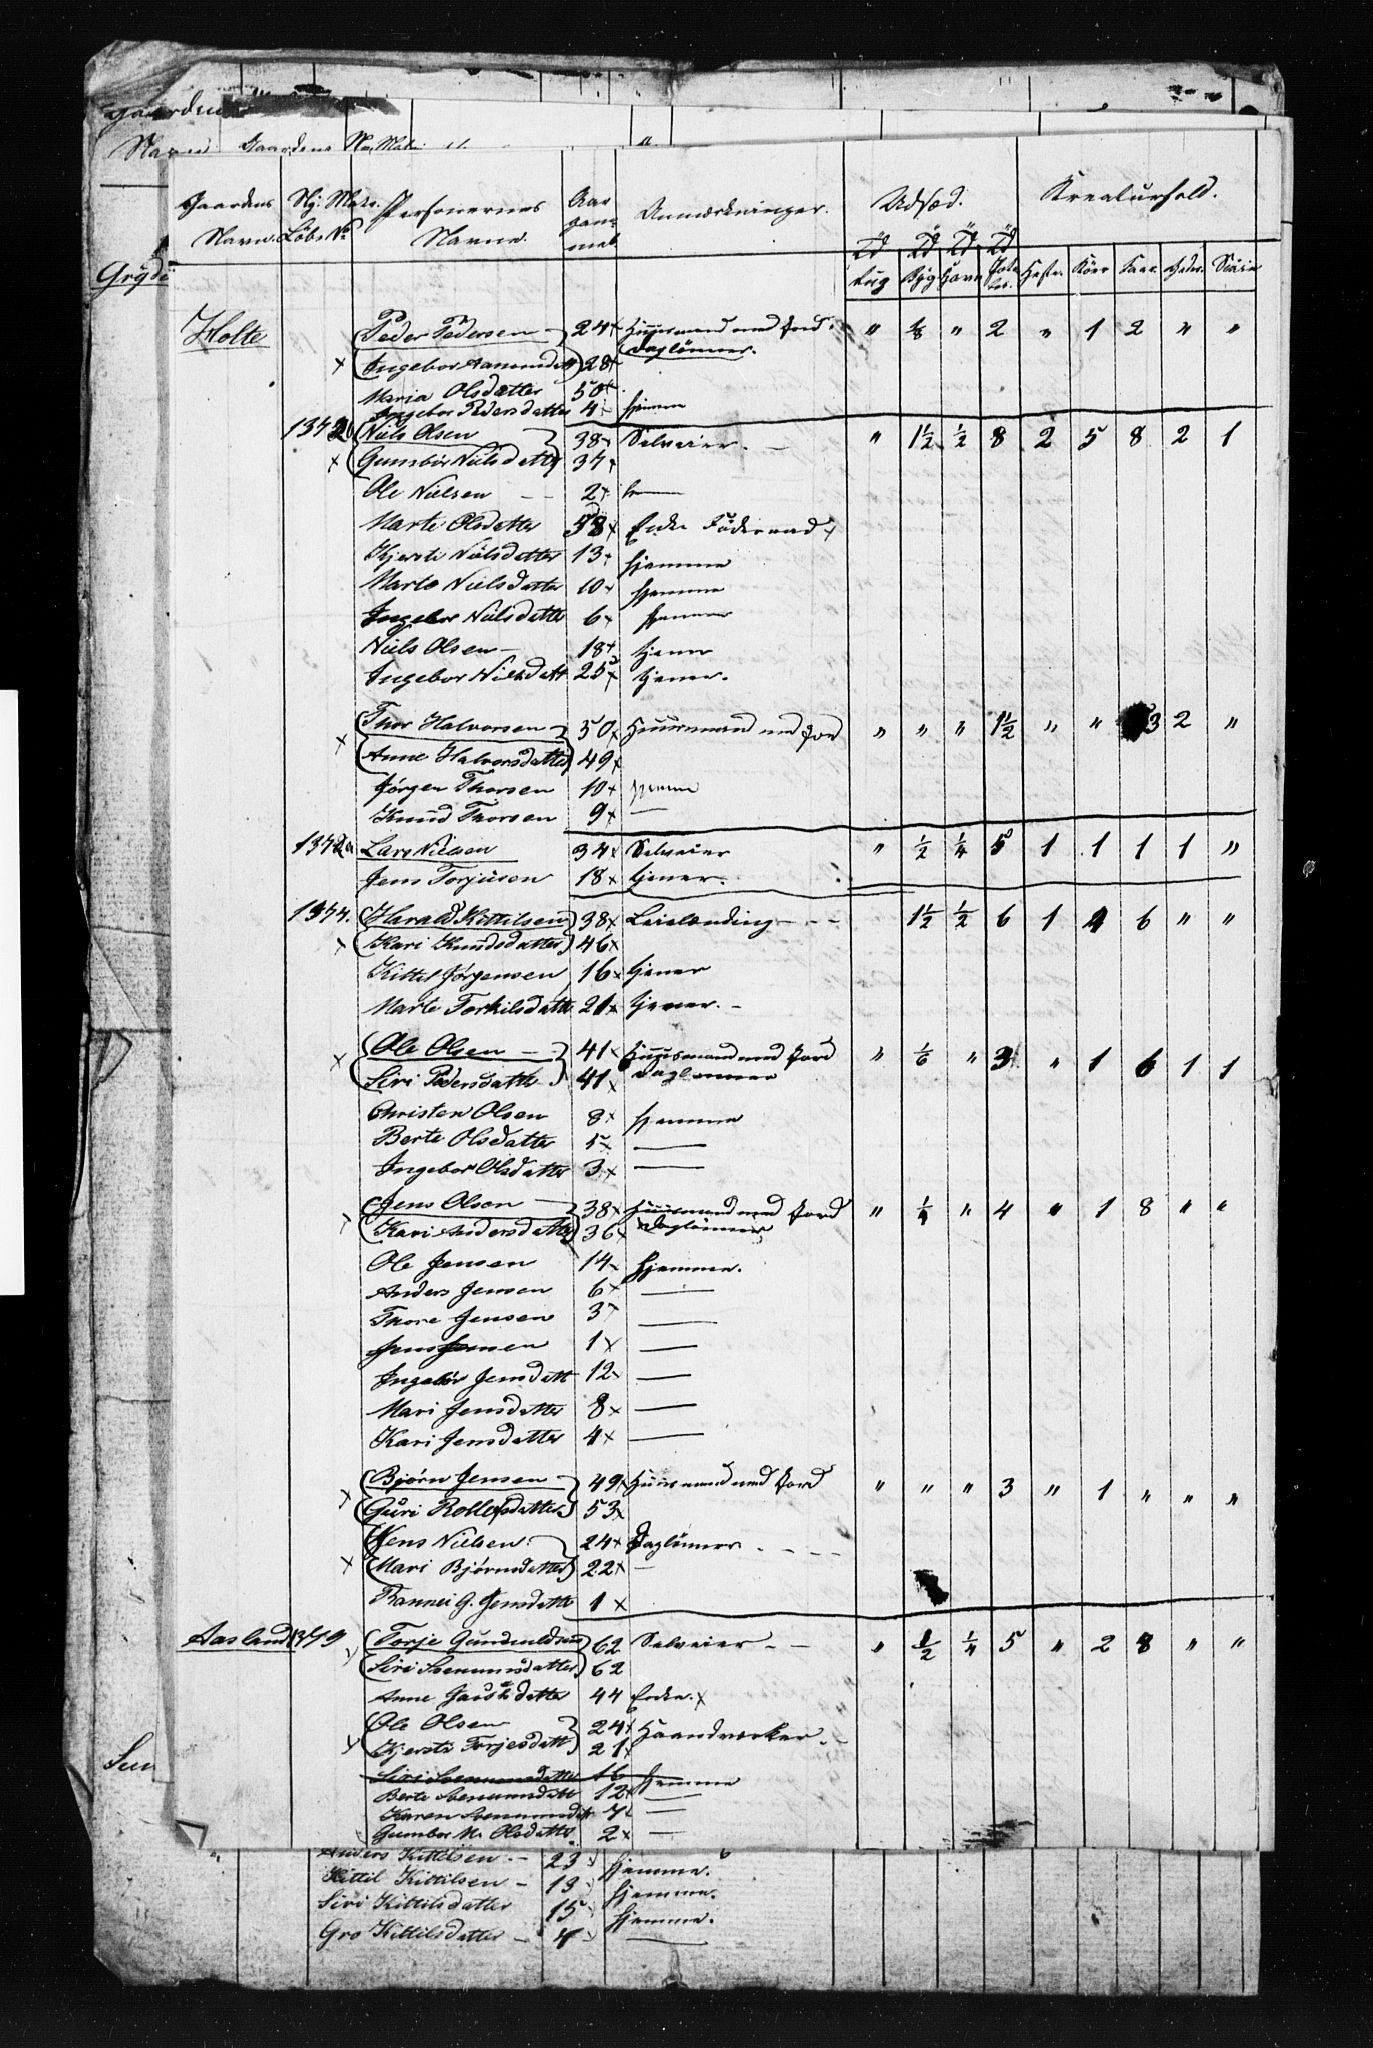 Gaardens Navn. Ny: Matr. Löbe No Personernes Navne. Aar gammel Anmærkninger. Udsæd. Kreaturhold.
Rug Byg Havre Hefte. Köer Faar. Geder. Sviin
Holte Peder Pedersen 24 x Huusmand med Jord. " 1/8 " 2 " 1 2 " "
x Ingebor Aamundsd 28 x Daglönner.
Maria Olsdatter 50 x
Ingebor Pedersdatter 4 x hjemme
Niels Olsen 38 x Selveier. " 1½ ½ 8 2 5 8 2 1
x Gunnbör Nielsdatter 37 x
Ole Nielsen 2 x
Marte Olsdatter 58 x Enke Föderaad x
Kjersti Nielsdatter 13 x hjemme
Marte Nielsdatter 10 x hjemme
Ingebor Nielsdatter 6 x hjemme
Niels Olsen 18 x tjener
Ingebor Nielsdatt 25 x tjener.
Thor Halvorsen 50 x Huusmand med Jord " " " 1½ " " 3 2 "
x Anne Halvorsdatter 49 x
Jörgen Thorsen 10 x hjemme
Knud Thorsen 9 x —
1372a Lars Nielsen 34 x Selveier " ½ ¼ 5 1 1 1 1 "
Jens Torjusen 18 x tjener.
1374. Harald Kittilsen 38 x Leilænding 1½ ½ 6 1 4 6 " "
x Kari Knudsdatter 46 x
Kittel Jörgensen 16 x tjener
Marte Torkilsdatt 21 x tjener.
x Ole Olsen 41 x Huusmand med Jord " 1/6 " 3 " 1 6 1 1
Siri Pedersdatte 41 x Daglönner
Christen Olsen 8 x hjemme
Berte Olsdatter 5 x —
Ingebor Olsdatter 3 x —
Jens Olsen 38 x Huusmand med Jord " ¼ " 4 " 1 8 " "
x Kari Andersdatter 36 x Daglönner
Ole Jensen 14 x hjemme.
Anders Jensen 6 x —
Thore Jensen 3 x —
Jens Jensen 1 x —
Ingebör Jensdatt 12 x —
Mari Jensdatter 8 x —
Kari Jensdatter 4 x —
Björn Jensen 49 x Huusmand med Jord " " " 3 " 1 " " "
x Guri Rollefsdatter 53 x
Jens Nielsen 24 x Daglönner
x Mari Björnsdatter 22 x —
G. Jensdatte 1 x
Aasland 1379 Torje Gundmldsen 62 Selveier " ½ ¼ 5 " 2 8 " "
Siri Svenumsdatter 62
Anne datter 44 Enke. x
Ole Olsen 24 x Haandverker
x Kjersti Torjesdatt 21 x
Siri Svenumsdatter 16 hjemme
Berte Svenumsdatt 12 x —
Karen Svenumsdatt 7 x —
Gumbor M. Olsdatte 2 x —
Anders Kittilsen 23 x hjemme.
Kittil Kittilsen 19 x hjemme.
Siri Kittilsdatter 15 x hjemme.
Gro Kittilsdatter 4 x —